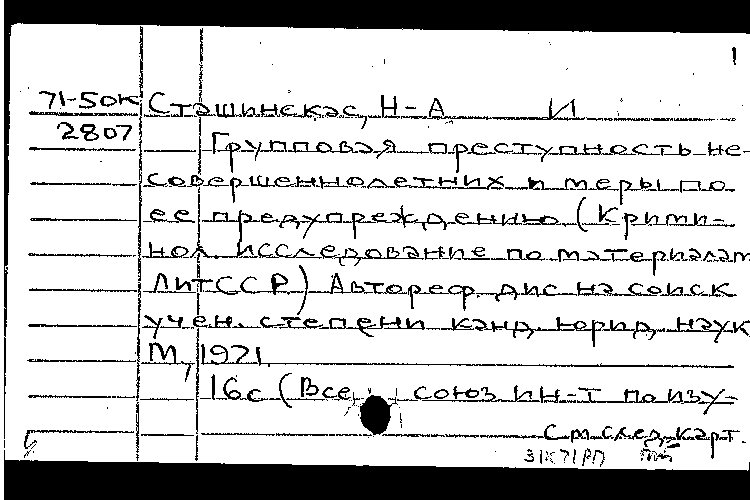 1
71-50к Сташинскас, Н-А И
2807 Групповая преступность не-
совершеннолетних и меры по
ее предупреждению (Крими-
нол. исследование по материалам
ЛитССР) Автореф. дис на соиск
учен. степени канд. юрид. наук
М, 1971
16с (Все союз ин-т по изу-
См след. карт.
31К71РП